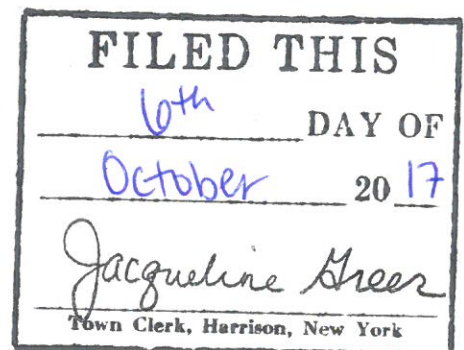 FILED THIS
6th DAY OF
October 20 17
Jacqueline Greer
Town Clerk, Harrison, New York